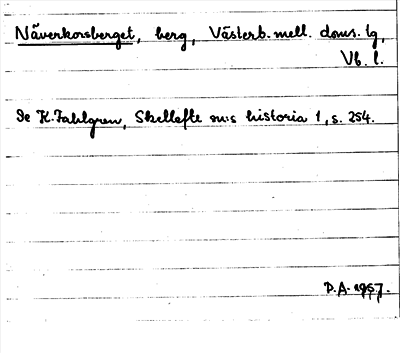 Näverkorsberget, berg, Västerb. mell. doms. lg,
Vb. l.
Se K. Fahlgren, Skellefte sn:s historia 1, s. 254.
D.A. 1957.